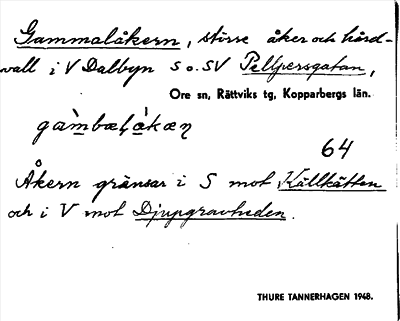 Gammalåkern, större åker och hård-
vall i V Dalbyn S o. SV Pellpersgatan,
Ore sn, Rättviks tg, Kopparbergs län.
64
Åkern gränsar i S mot Källkätten
och i V mot Djupgravheden.
THURE TANNERHAGEN 1948.